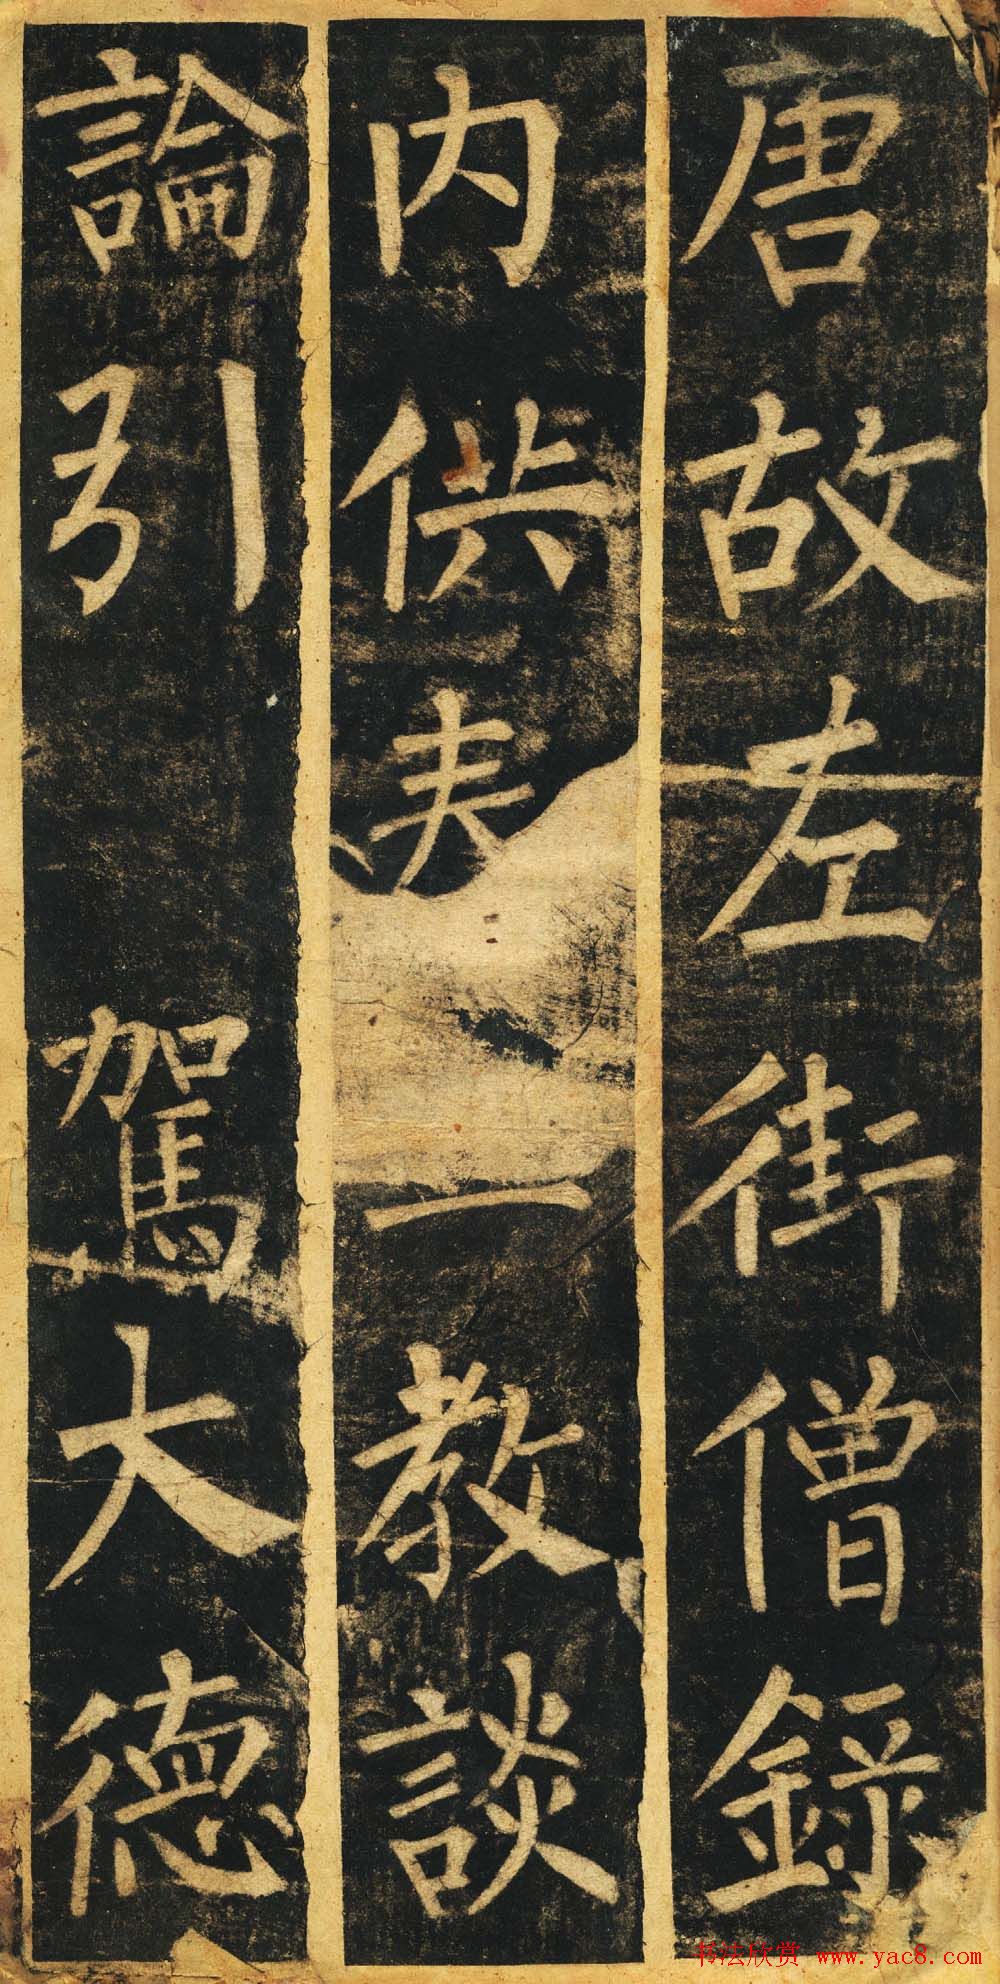 唐故左街僧錄
内供奉三教談
論引駕大德
书法欣赏 www.yac8.com